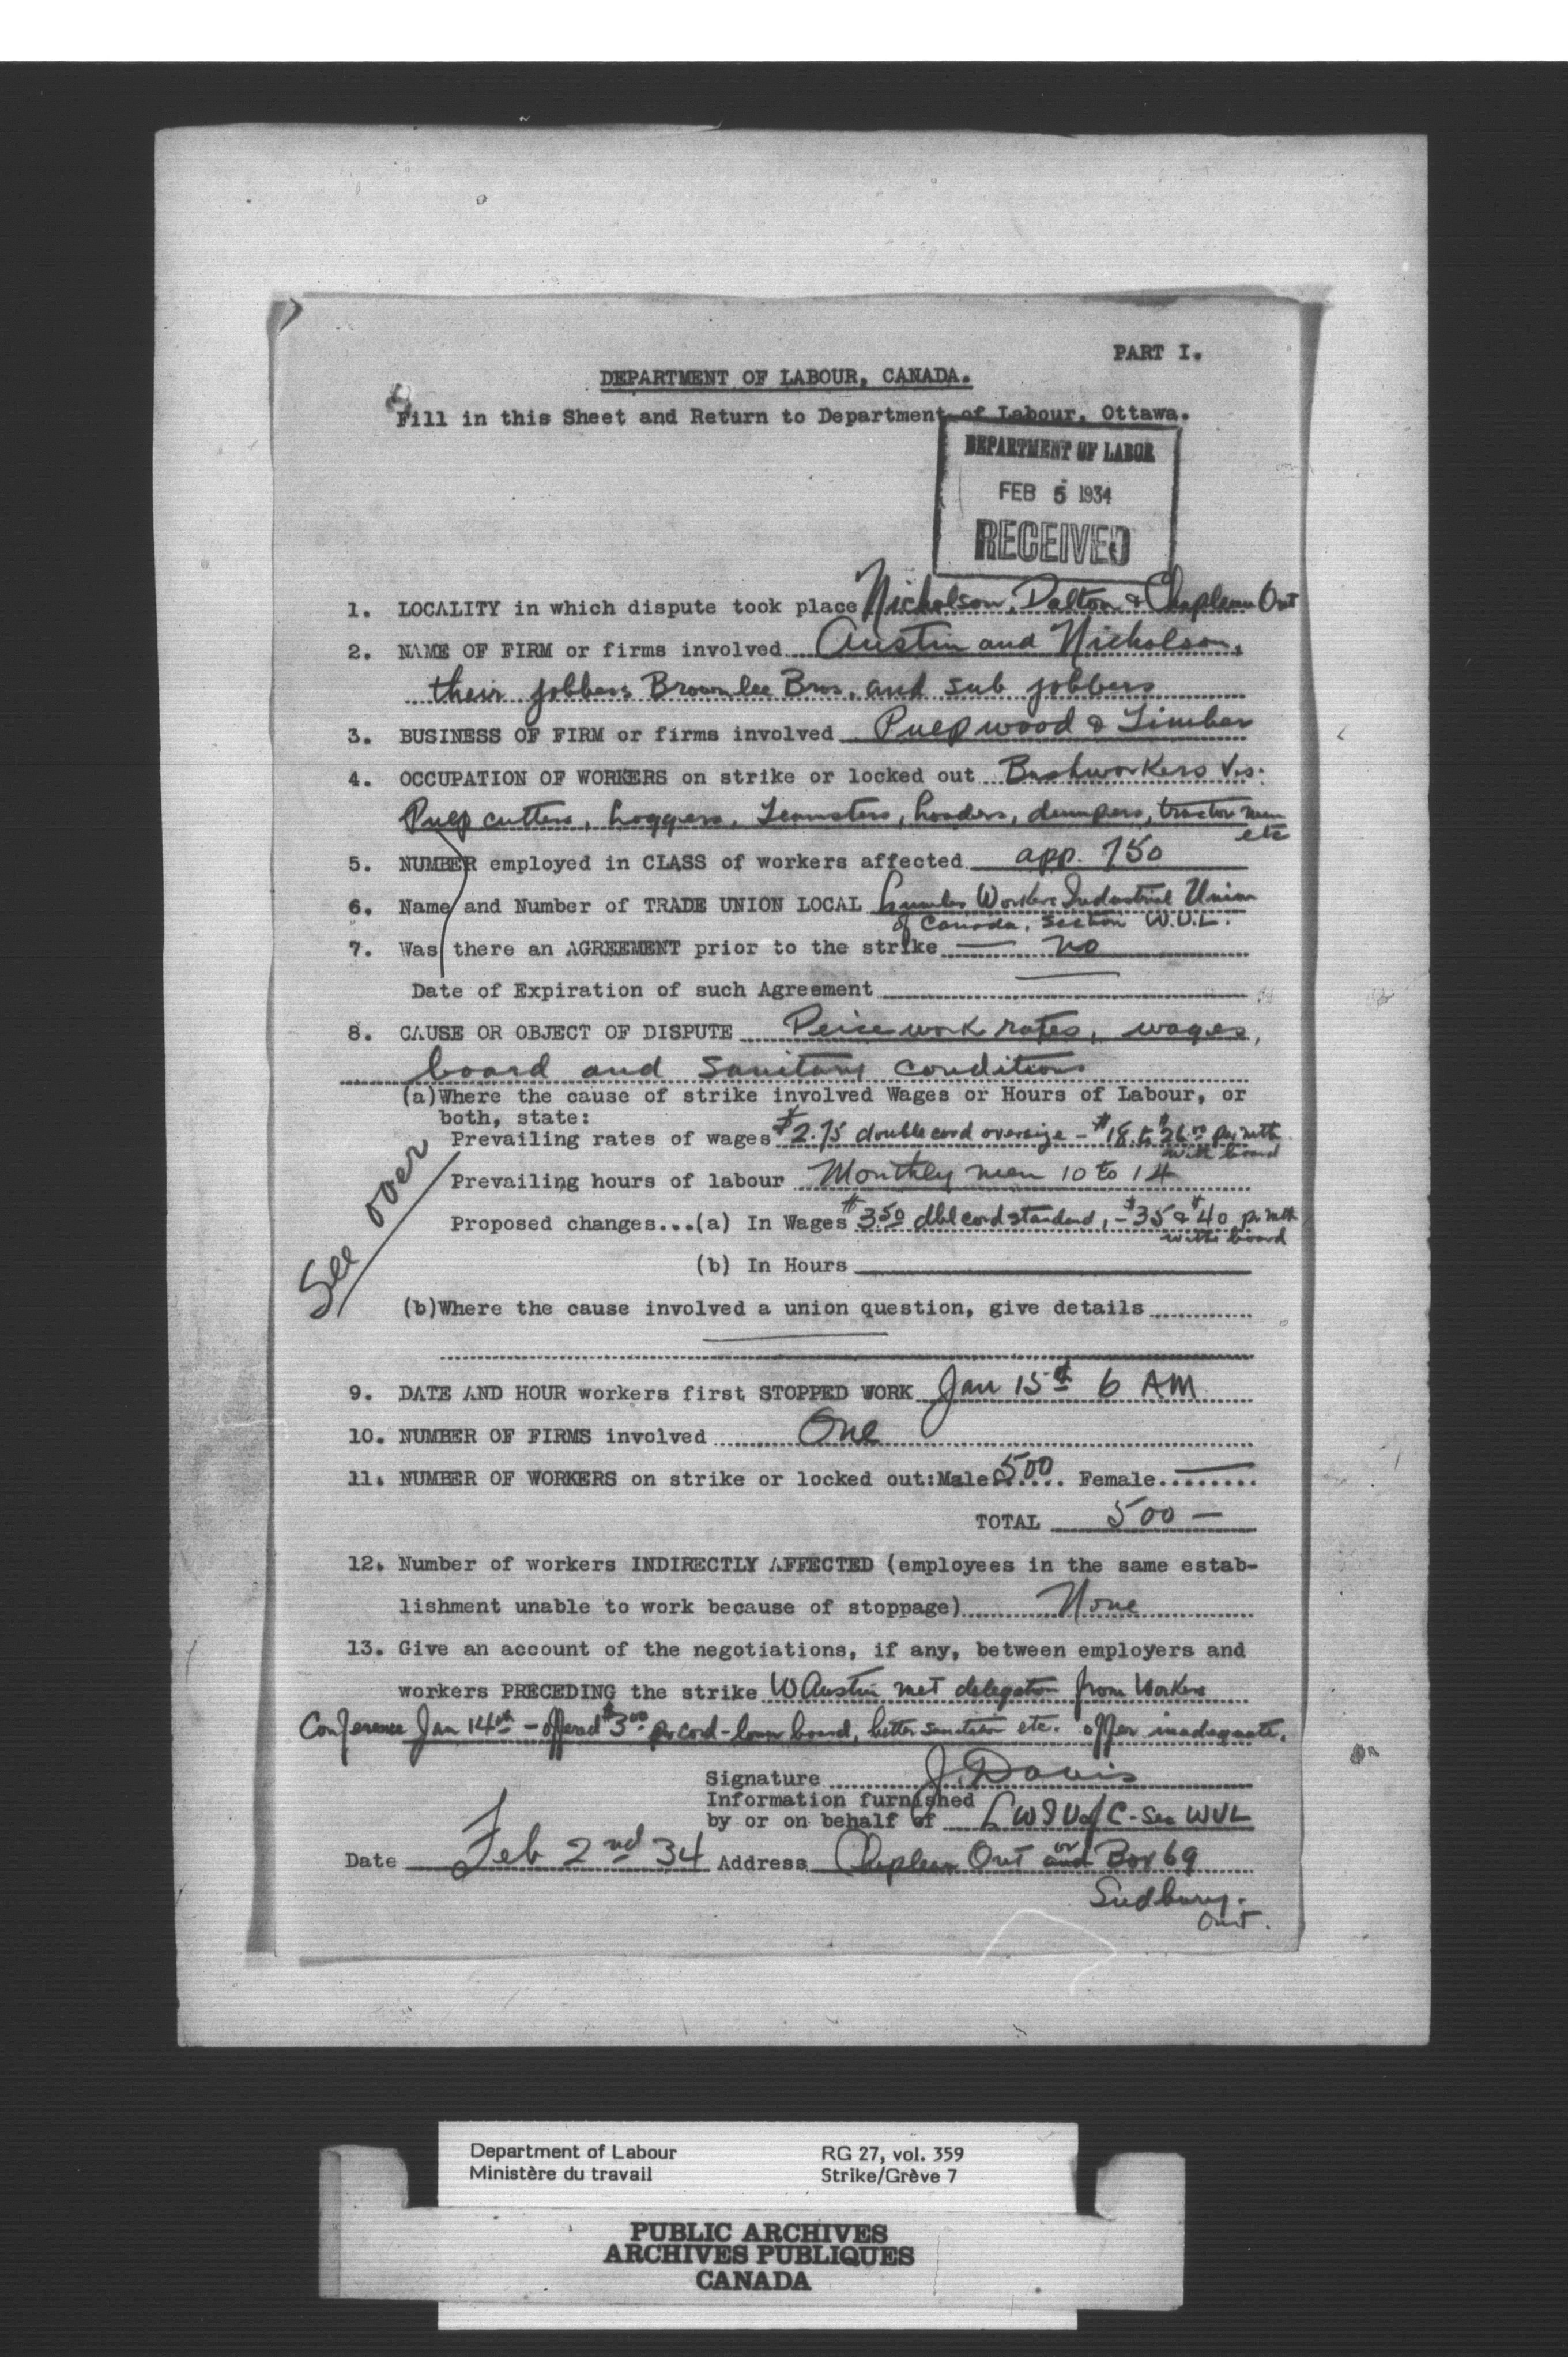 PART I.
DEPARTMENT OF LABOUR, CANADA.
Fill in this Sheet and Return to Department of Labour, Ottawa.
DEPARTMENT OF LABOR
FEB 5 1934
RECEIVED
1. LOCALITY in which dispute took place Nicholson, Dalton & Chapleau Ont
2. NAME OF FIRM or firms involved Austin and Nicholson,
their jobbers Brownlee Bros. and sub jobbers
3. BUSINESS OF FIRM or firms involved Pulpwood & Timber
4. OCCUPATION OF WORKERS on strike or locked out Bushworkers Vis:
Pulp cutters, Loggers, Teamsters, Loaders, dumpers, tractor men
etc
5. NUMBER employed in CLASS of workers affected app. 750
6. Name and Number of TRADE UNION LOCAL Lumber Workers Industrial Union
of Canada, section W.U.L.
7. Was there an AGREEMENT prior to the strike — no
Date of Expiration of such Agreement
8. CAUSE OR OBJECT OF DISPUTE Peice work rates, wages,
board and sanitary conditions
(a)Where the cause of strike involved Wages or Hours of Labour, or
both, state:
Prevailing rates of wages $2.75 double cord oversize - $18. to $26.00 per mth
with board
Prevailing hours of labour Monthly men 10 to 14
See over
Proposed changes...(a) In Wages $3.50 dbl cord standard, - $35 & $40 pr mth
with board
(b) In Hours
(b)Where the cause involved a union question, give details
9. DATE AND HOUR workers first STOPPED WORK Jan 15th 6 AM
10. NUMBER OF FIRMS involved One
11. NUMBER OF WORKERS on strike or locked out:Male 500 Female
TOTAL 500 —
12. Number of workers INDIRECTLY AFFECTED (employees in the same estab-
lishment unable to work because of stoppage) None
13. Give an account of the negotiations, if any, between employers and
workers PRECEDING the strike W Austin met delegation from Workers
Conference Jan 14th - offered $3.00 per cord - lower board, better sanitation etc. offer inadequate.
Signature J. Davis
Information furnished
by or on behalf of L W I U of C - Sec WUL
Date Feb 2nd 34 Address Chapleau Ont and or Box 69
Sudbury.
Ont.
Department of Labour
Ministère du travail
RG 27, vol. 359
Strike/Grève 7
PUBLIC ARCHIVES
ARCHIVES PUBLIQUES
CANADA